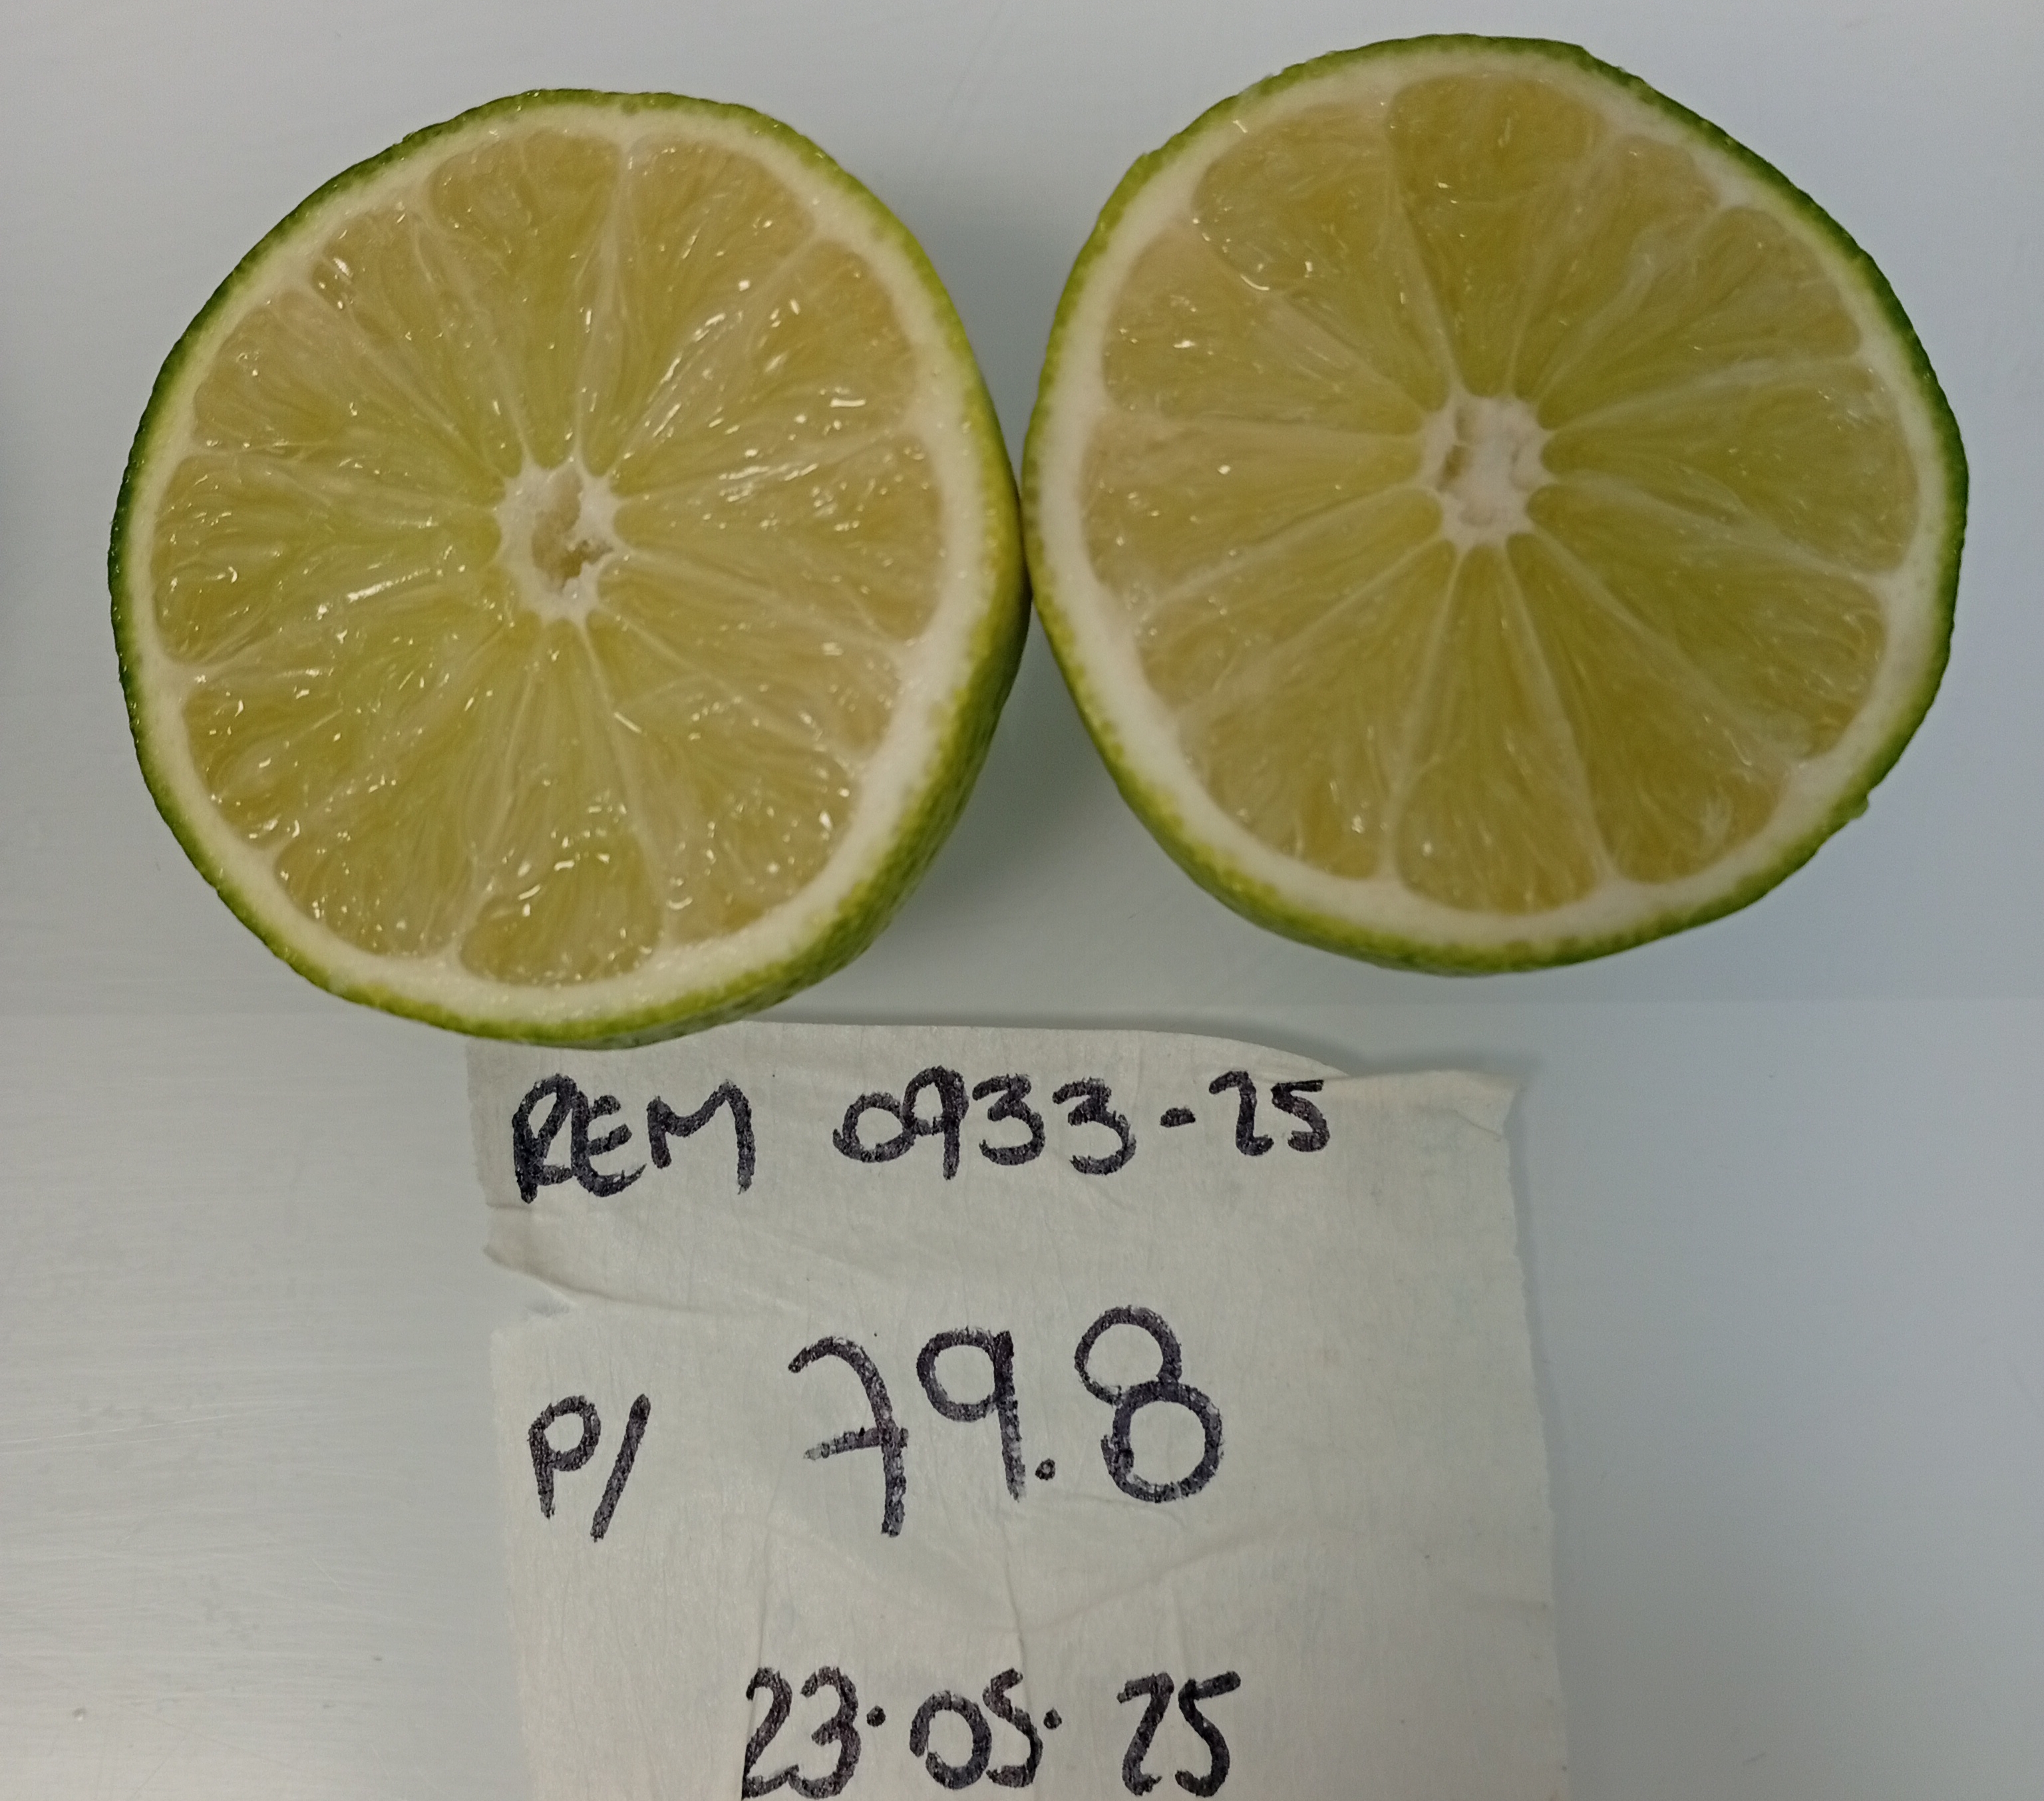 REM 0933-25
P/ 79.8
23.05.25